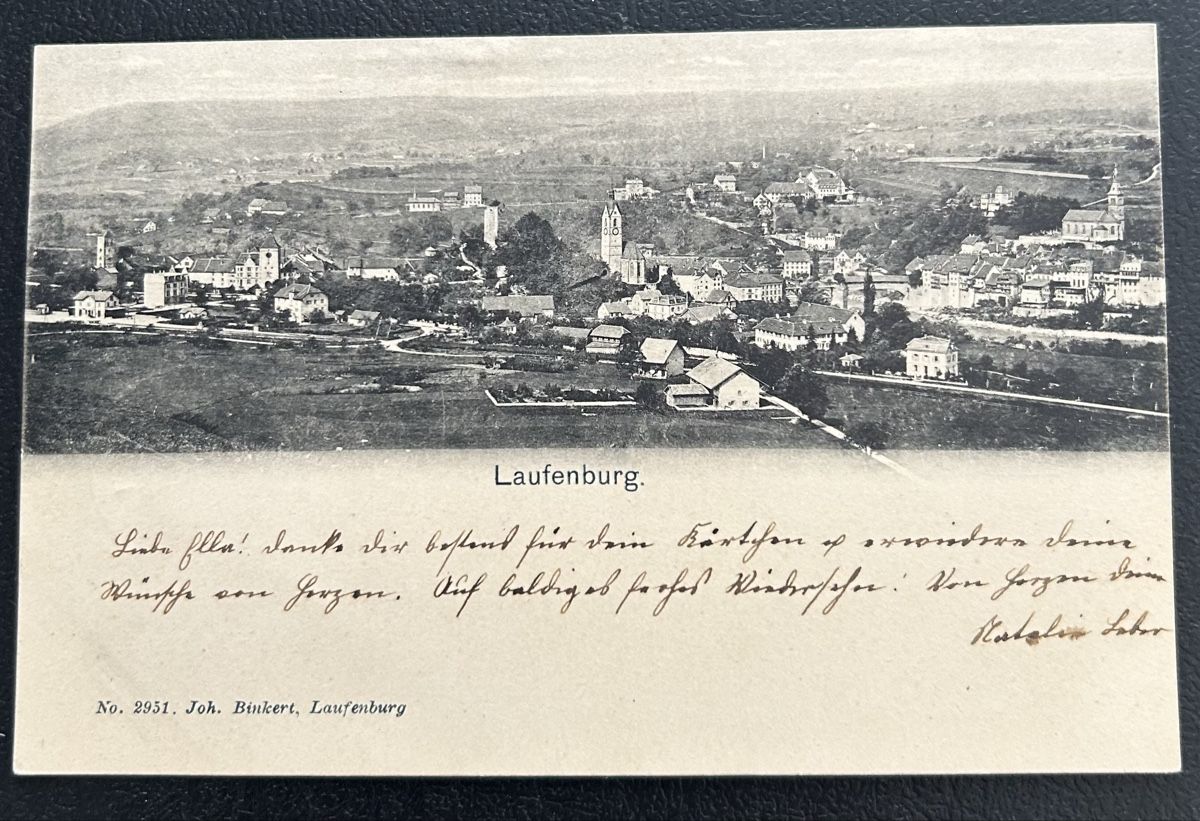 Laufenburg.
Liebe Ella! danke dir bestens für dein Kärtchen & erwiedere deine
Wünsche von Herzen. Auf baldiges frohes Wiedersehn! Von Herzen deine
Natalie Leber
No. 2951. Joh. Binkert, Laufenburg